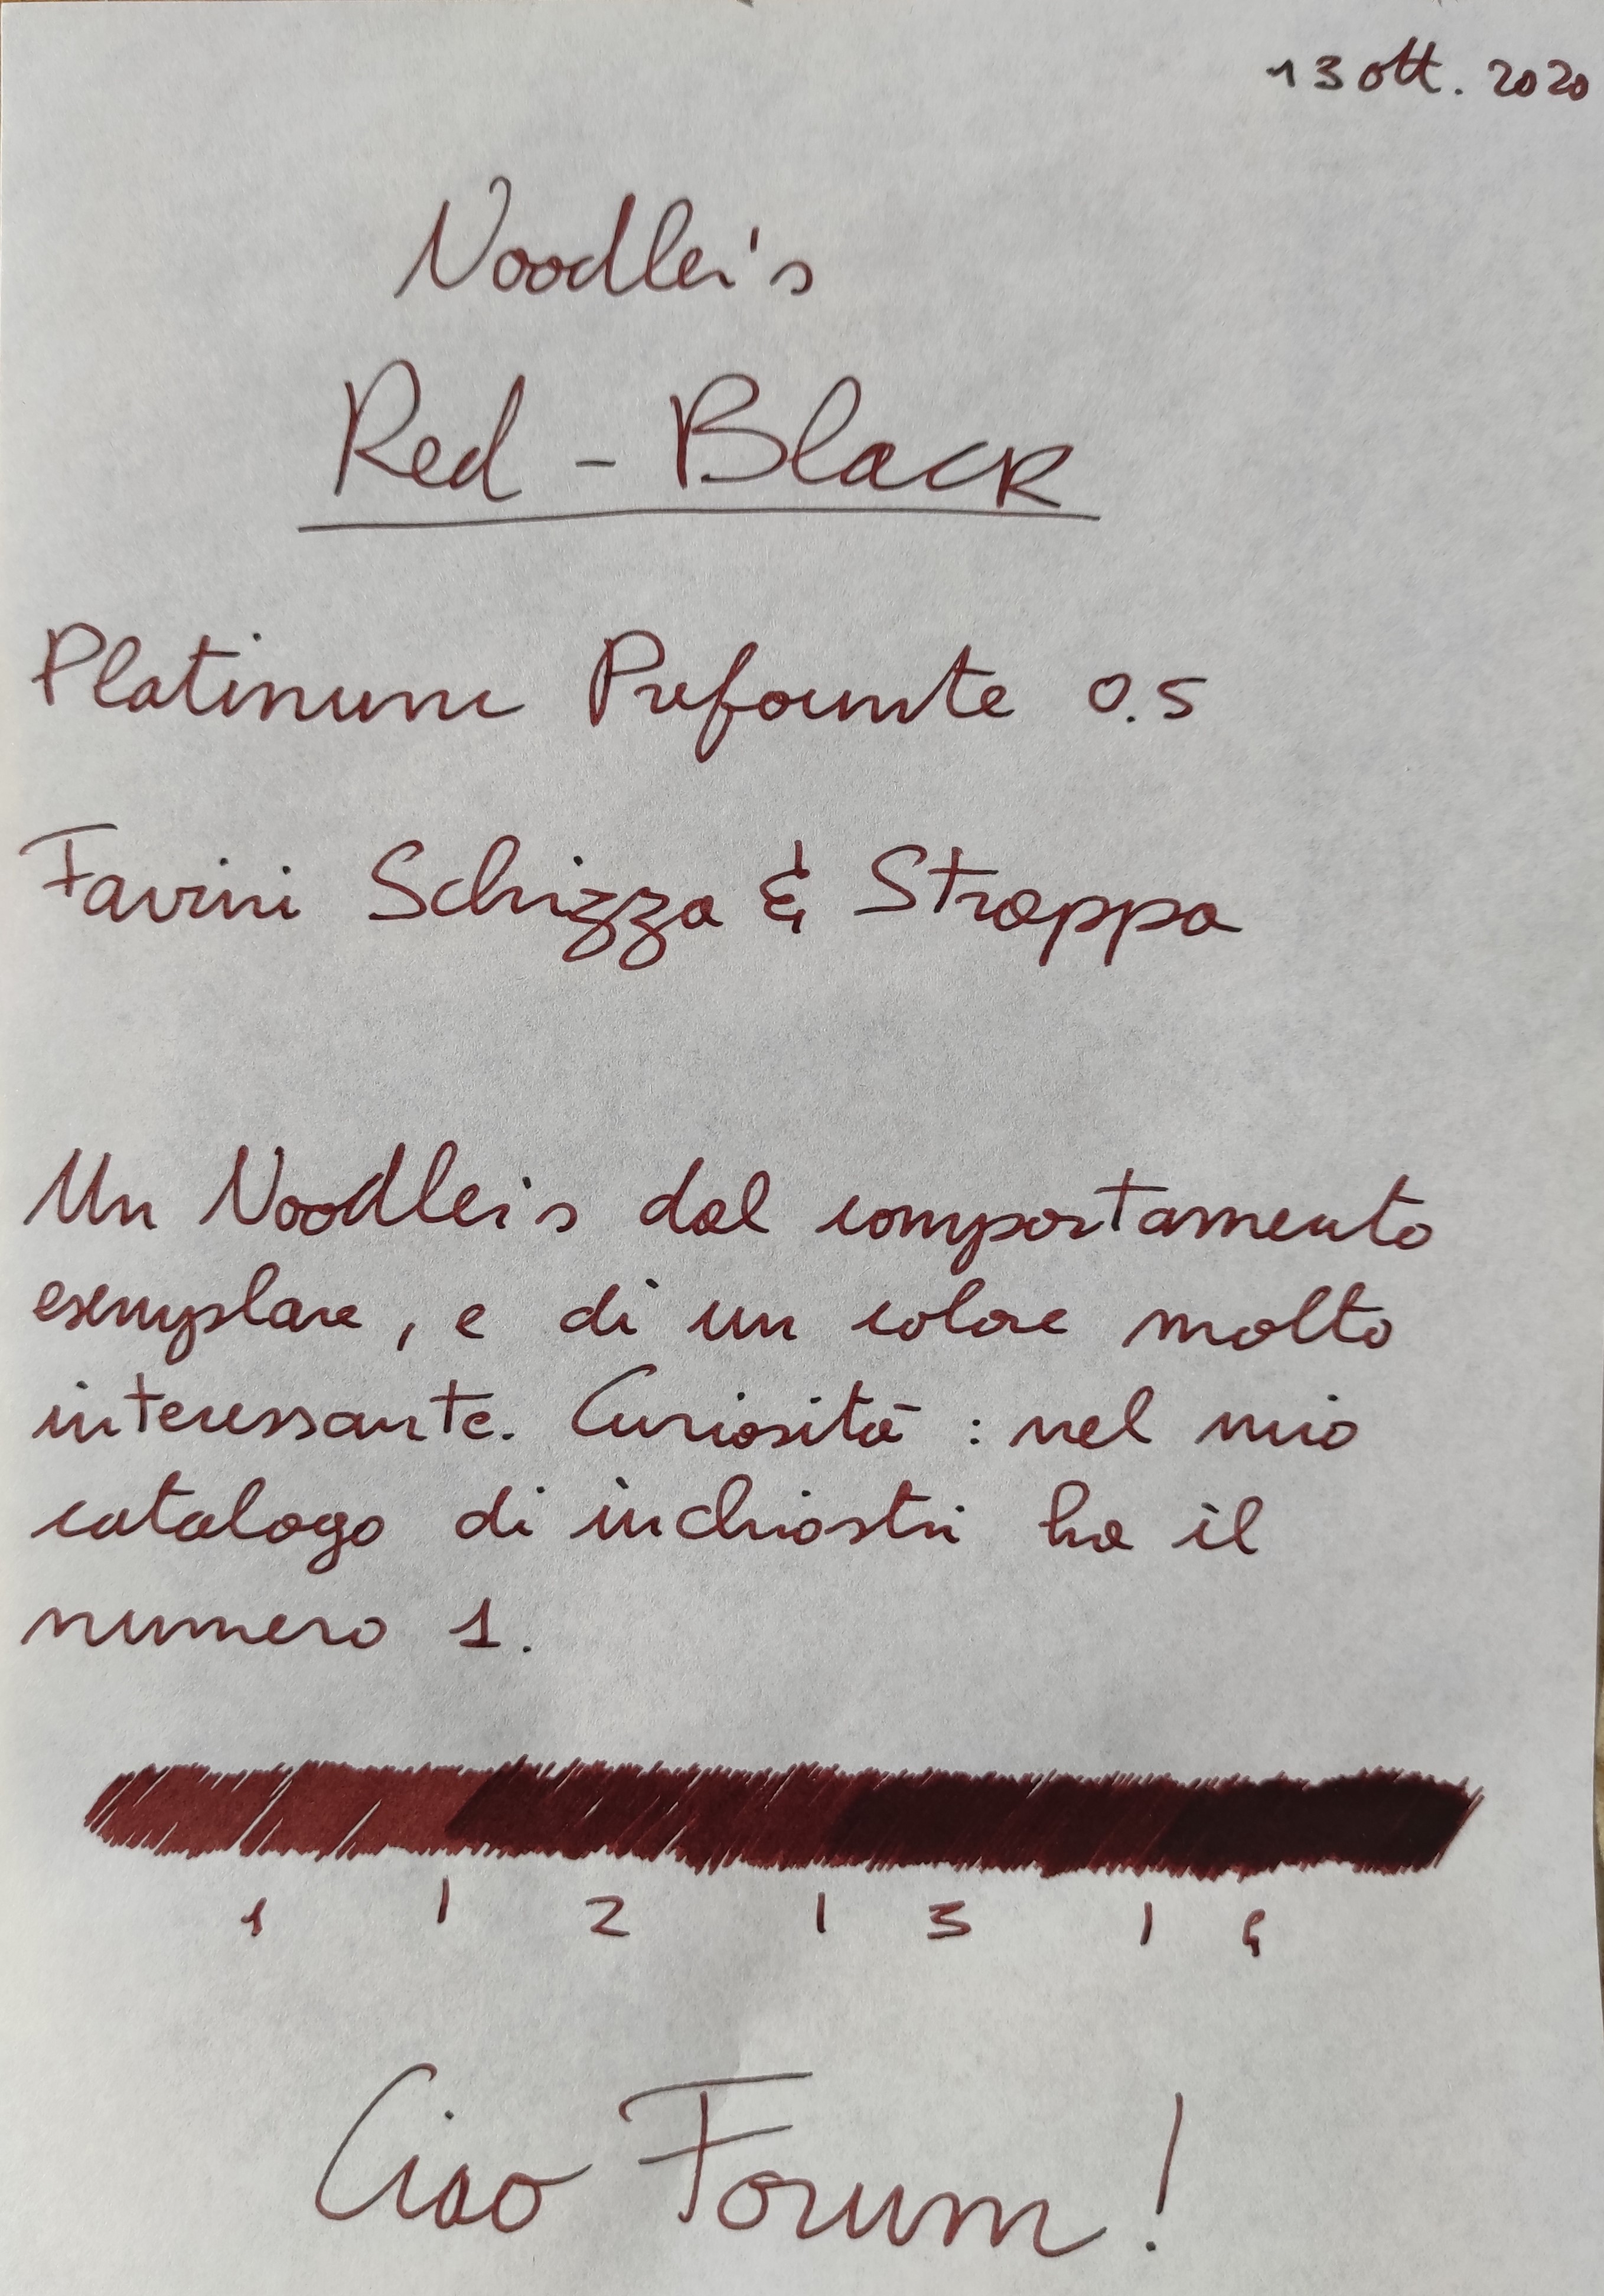 13 ott. 2020
Noodler's
Red - Black
Platinum Prefounte 0.5
Favini Schizza & Strappa
Un Noodler's dal comportamento
esemplare, e di un colore molto
interessante. Curiosità: nel mio
catalogo di inchiostri ha il
numero 1.
1 | 2 | 3 | 4
Ciao Forum!